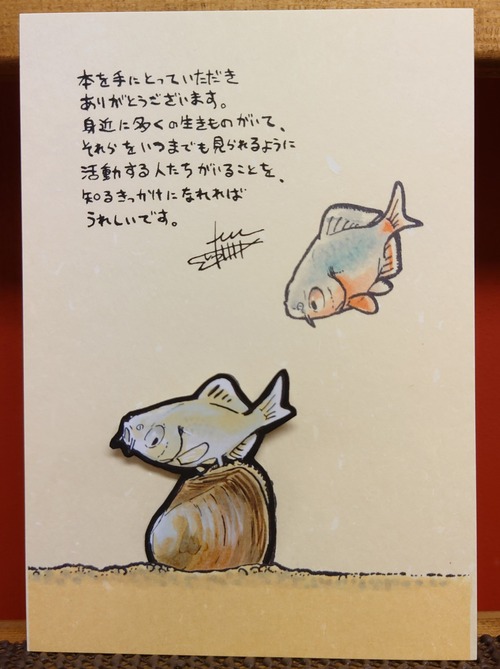 本を手にとっていただき
ありがとうございます。
身近に多くの生きものがいて、
それらをいつまでも見られるように
活動する人たちがいることを、
知るきっかけになれれば
うれしいです。